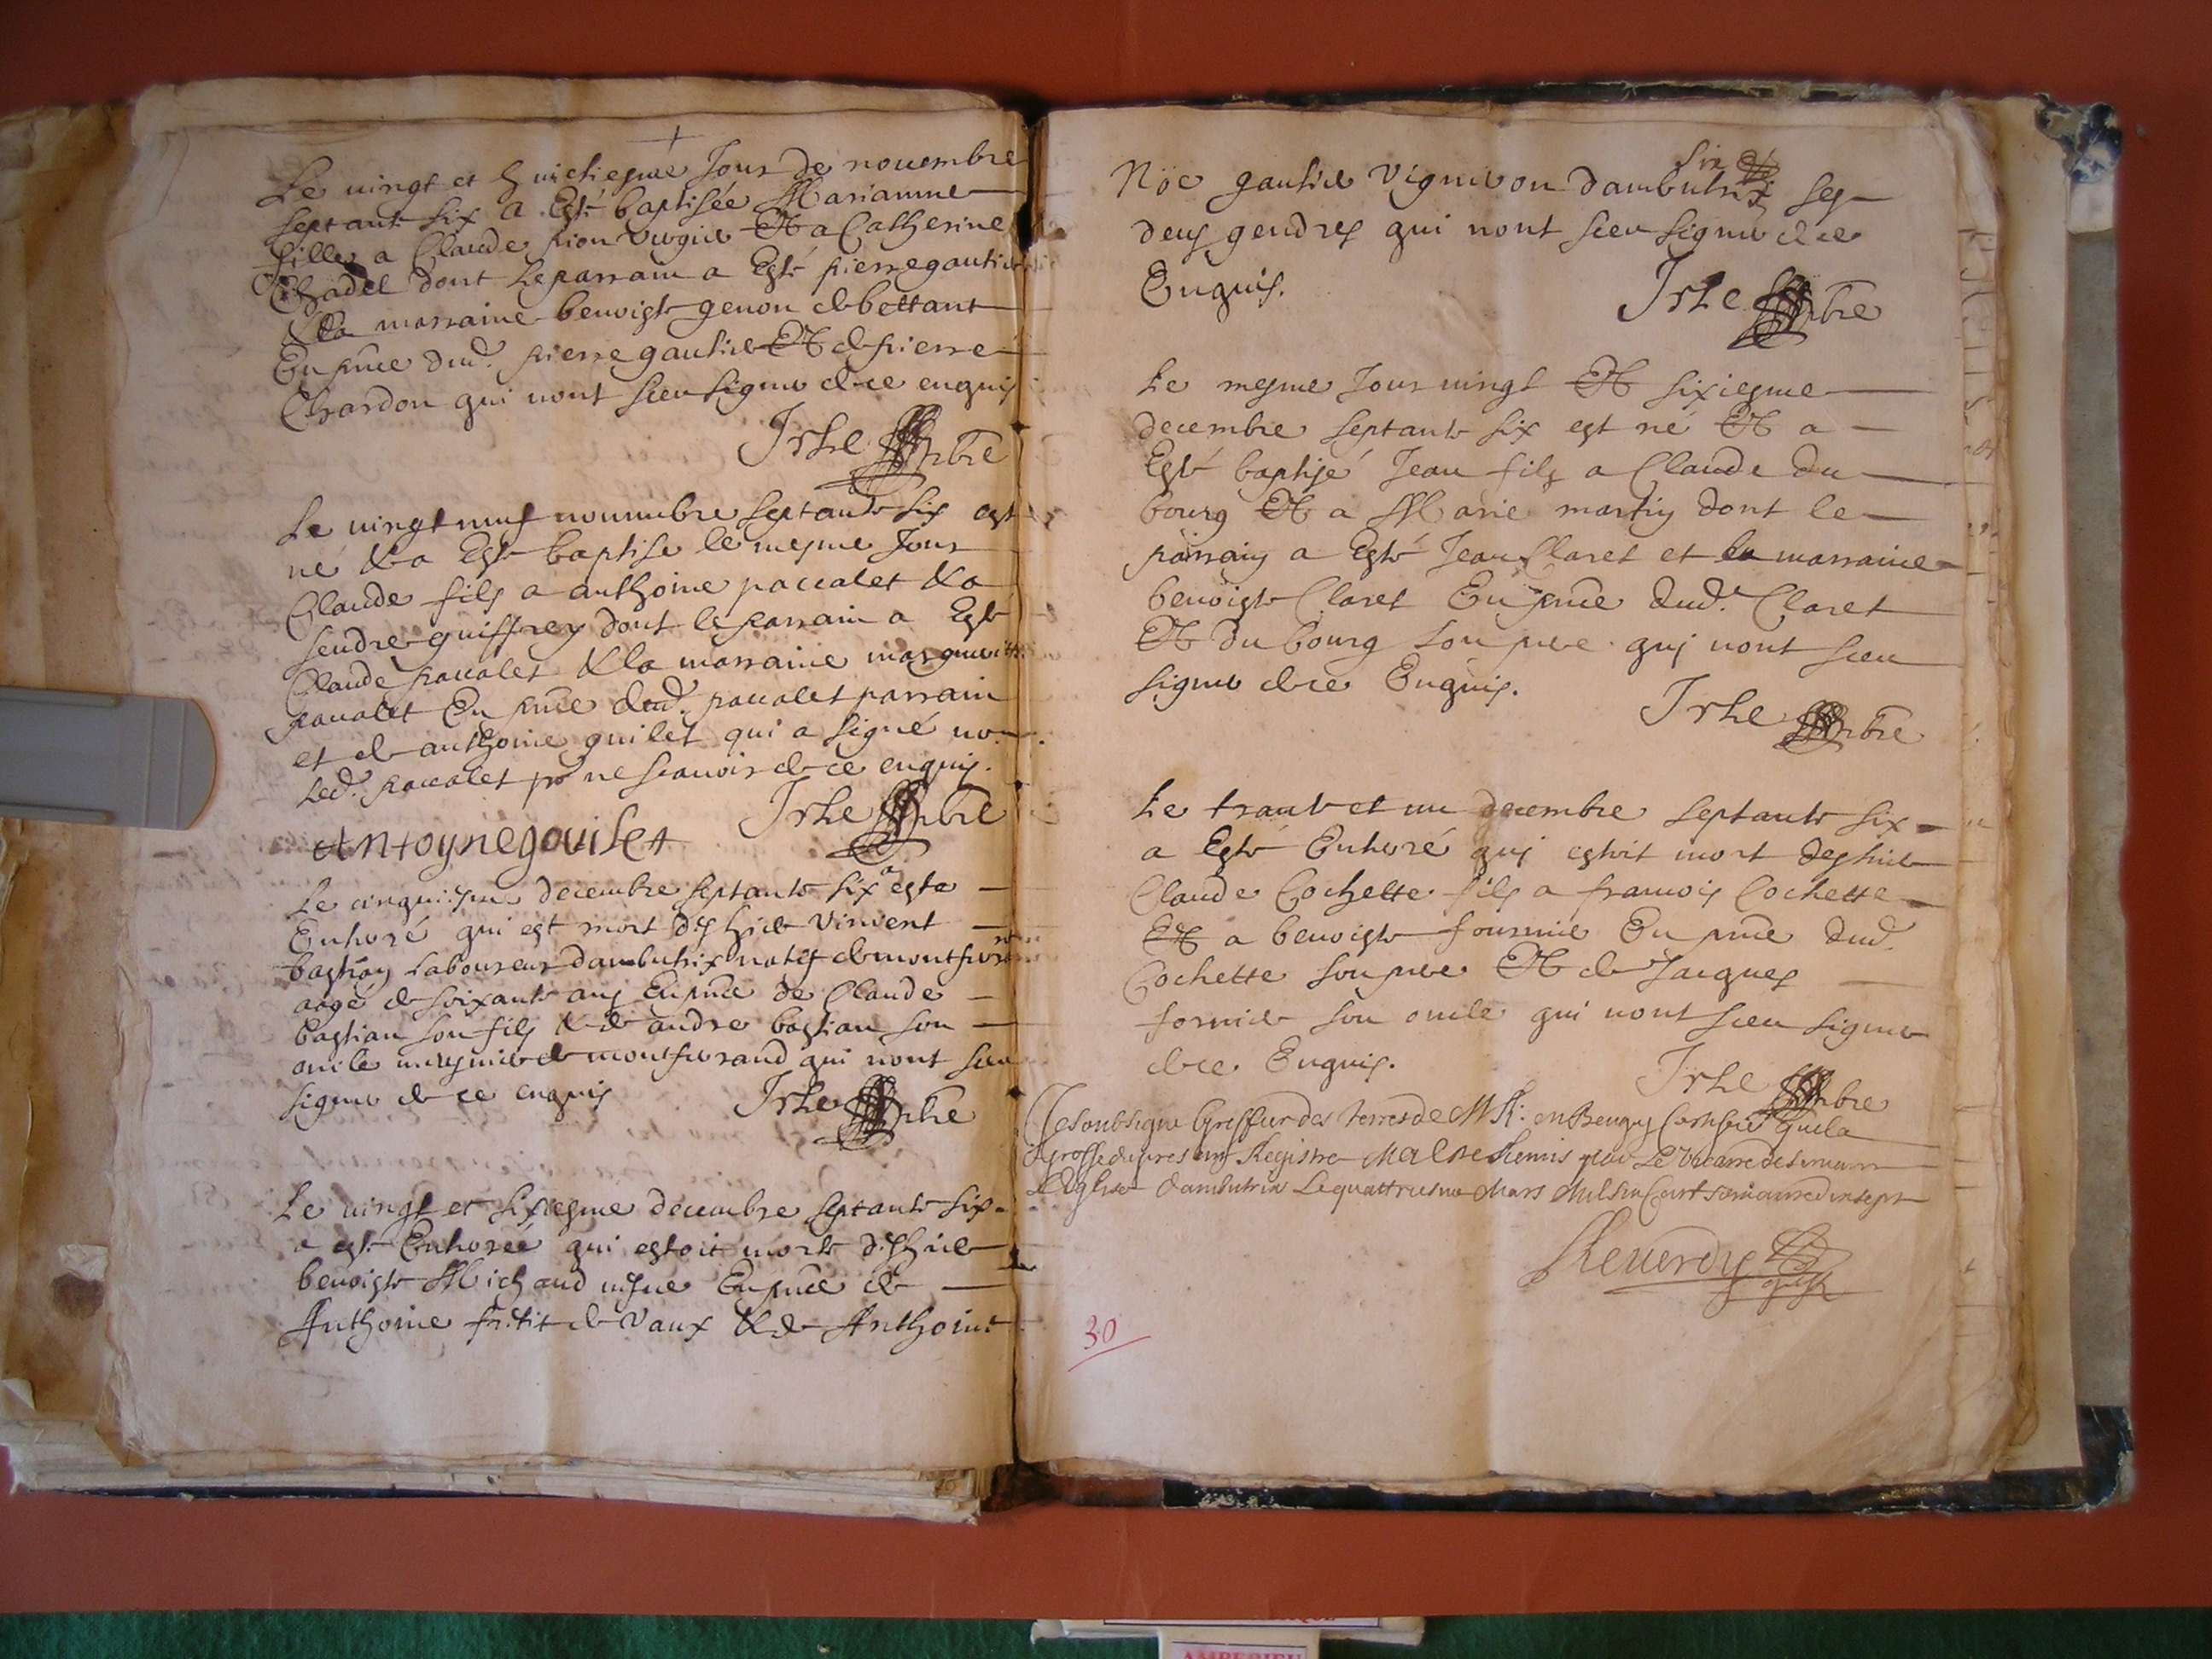 Le vingt et huictiesme Jour de nouembre
septante six a Esté baptisée Marianne
fille a Claude pion vergier Et a Catherine
Chadel dont Le parrain a Esté pierre gautier
& la marraine benoiste genon de bettant
En pnce dud. pierre gautier Et de pierre
Chardon qui nont sceu signer de ce enquis
Irhe pbre
Le vingt neuf nouembre septante six est
né & a Esté baptise le mesme Jour
Claude fils a anthoine paccalet & a
guiffrey dont le parrain a Esté
Claude paccalet & la marraine marguerite
paccalet En pnce dud. paccalet parrain
et de anthoine guilet qui a signé no
Led. paccalet pr ne scauoir de ce enquis.
Irhe pbre
Antoyne gouilet
Le cinquiesme decembre septante six a este
Enteré qui est mort dhier Vincent
bastian Laboureur dambutrix natif de montferrand
aagé de soixante ans En pnce de Claude
bastian son fils & de andre bastian son
oncle de montferrand qui nont sceu
signer de ce enquis
Irhe pbre
Le vingt et sixiesme decembre septante six
a esté Enterée qui estoit morte dhier
benoiste Michaud En pnce de
Anthoine de Vaux & de Anthoine
Noe gautier Vigneron dambutrix ses
deux gendres qui nont sceu signer de ce
Enquis.
Irhe pbre
Le mesme Jour vingt Et sixiesme
decembre septante six est né Et a
Esté baptisé Jean fils a Claude du
bourg Et a Marie martin dont le
parrain a Esté Jean Claret et la marraine
benoiste Claret En pnce dud. Claret
Et du bourg son pere qui nont sceu
signer de ce Enquis.
Irhe pbre
Le trante et un decembre septante six
a Esté Enteré qui estoit mort deshier
Claude Cochette fils a francois Cochette
Et a benoiste fournier En pnce dud.
Cochette son pere Et de Jacques
fornier son oncle qui nont sceu signer
de ce Enquis.
Irhe pbre
Je soubsigne Greffier des terres de en Beugey Certifie que la
grosse du presant Registre Ma esté Remis par Le Vicaire
Leglise dambutrix Le quattriesme Mars Mil six Cent soixante dix sept
Reuerdy
30